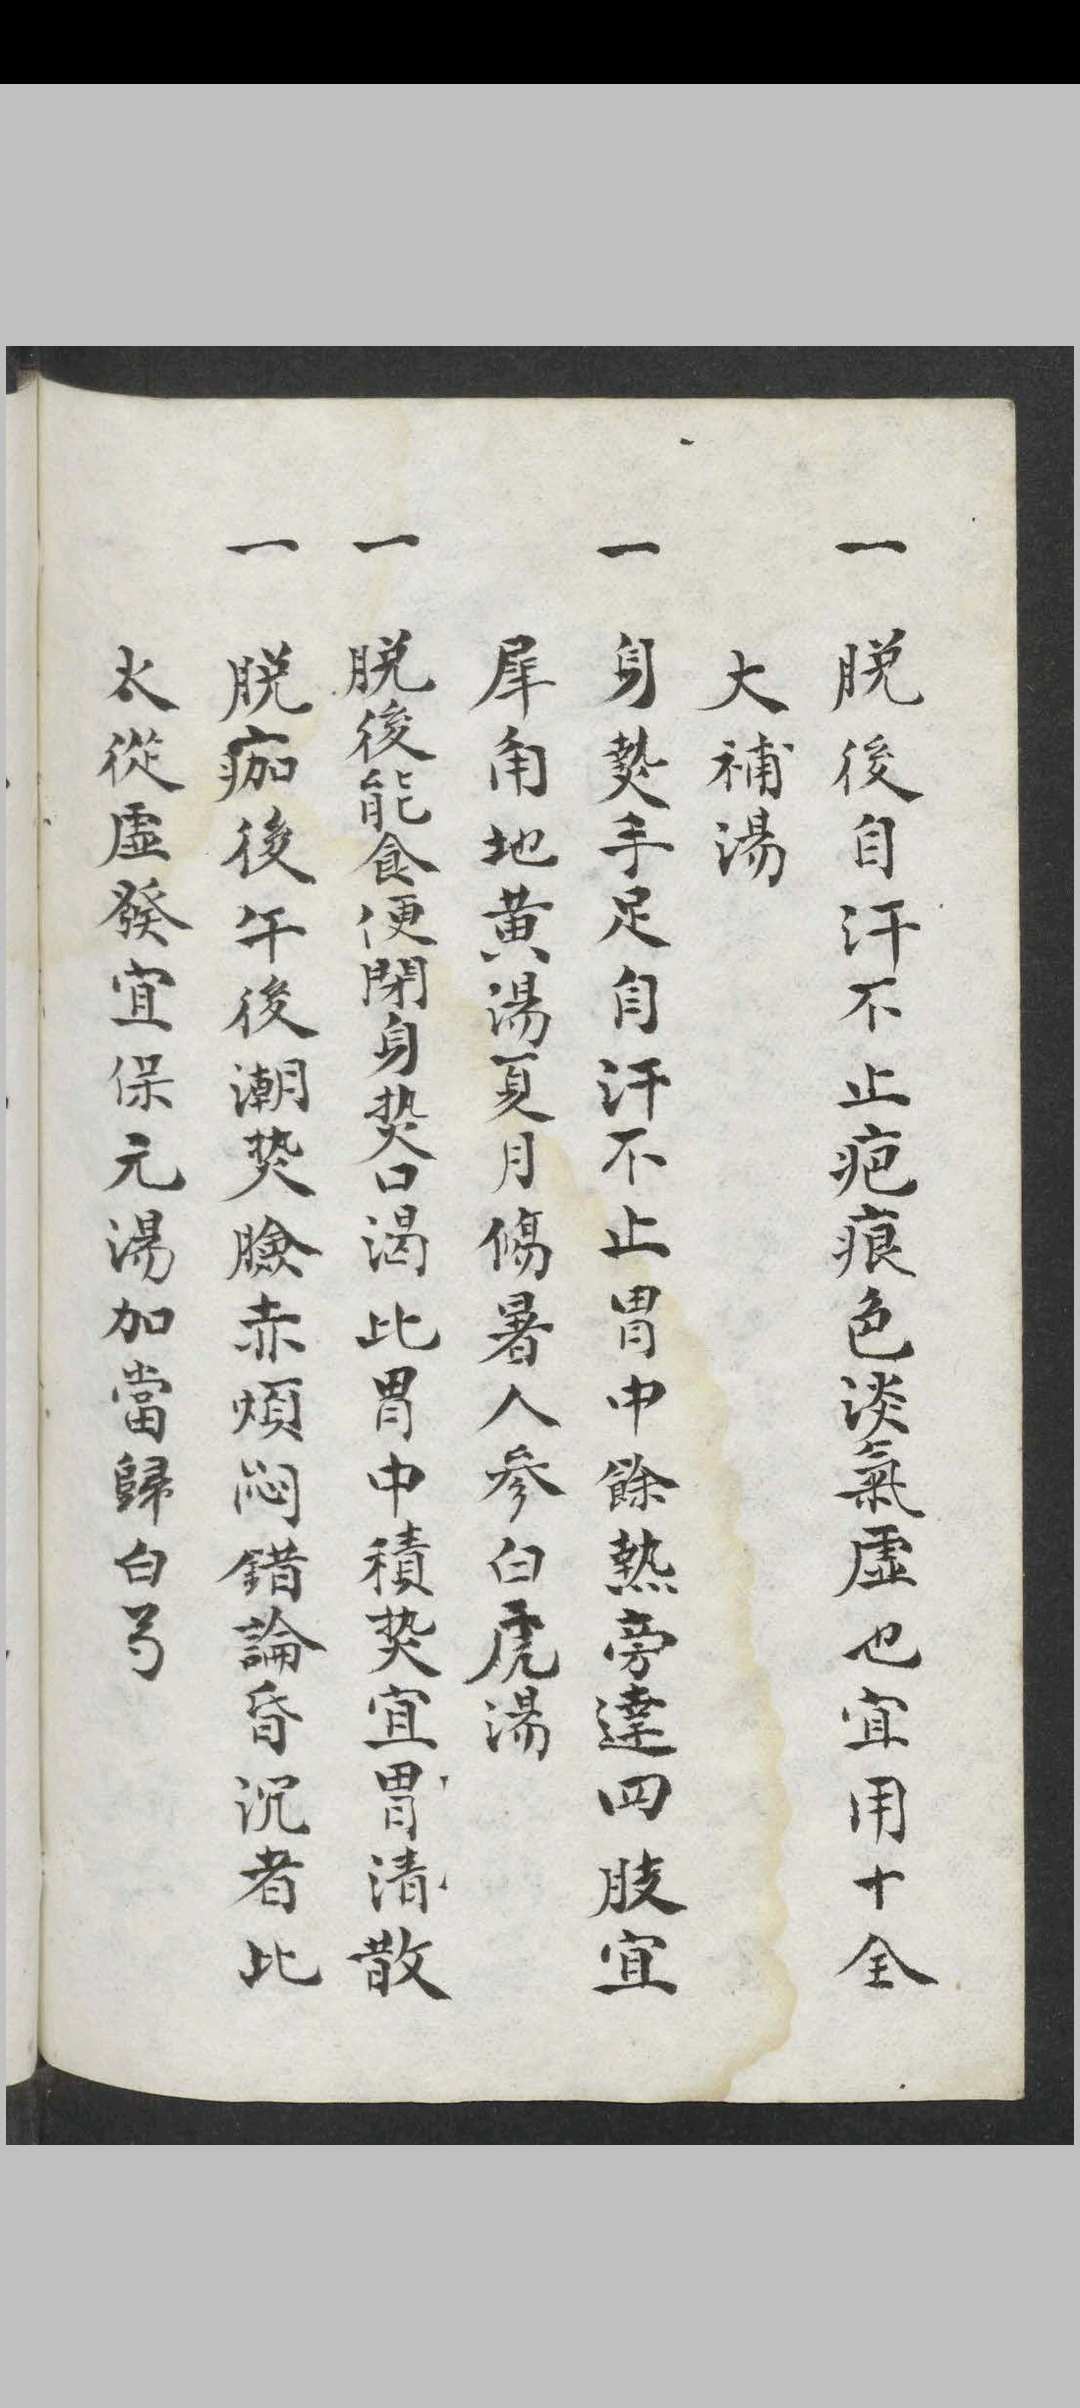 一 脱後自汗不止疤痕色淡氣虛也宜用十全
大補湯
一 身熱手足自汗不止胃中餘熱旁達四肢宜
犀角地黃湯夏月傷暑人參白虎湯
一 脱後能食便閉身热口渴比胃中積热宜胃清散
一 脱痂後午後潮热臉赤煩悶錯論昏沉者比
火從虛發宜保元湯加當歸白芍